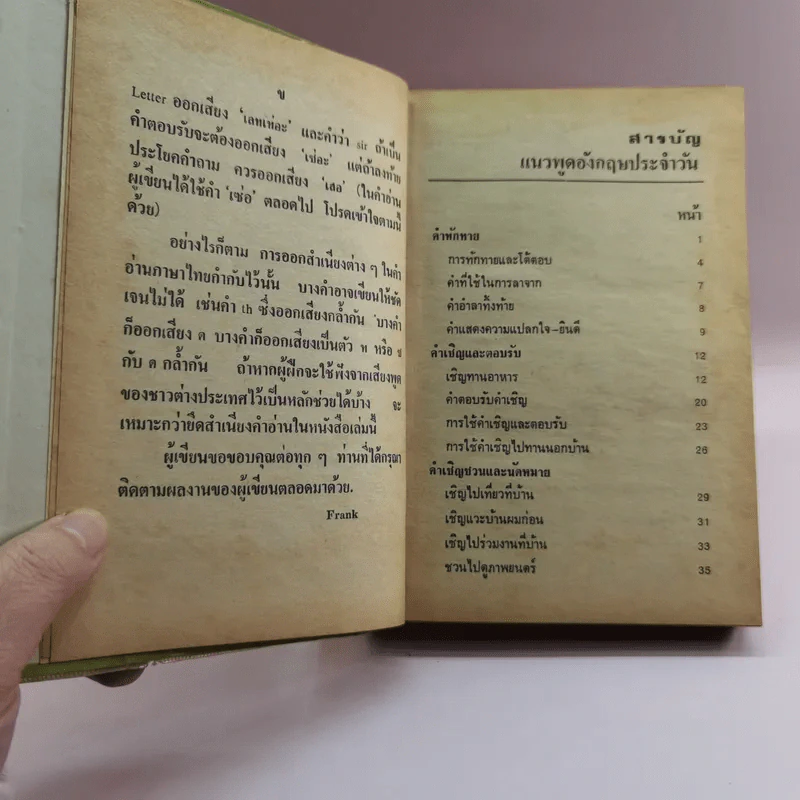 ข
Letter ออกเสียง 'เลทเท่อะ' และคำว่า sir ถ้าเป็น
คำตอบรับจะต้องออกเสียง 'เซ่อะ' แต่ถ้าลงท้าย
ประโยคคำถาม ควรออกเสียง 'เสอ' (ในคำอ่าน
ผู้เขียนได้ใช้คำ 'เซ่อ' ตลอดไป โปรดเข้าใจตามนี้
ด้วย)
อย่างไรก็ตาม การออกสำเนียงต่าง ๆ ในคำ
อ่านภาษาไทยกำกับไว้นั้น บางคำอาจเขียนให้ชัด
เจนไม่ได้ เช่นคำ th ซึ่งออกเสียงกล้ำกัน บางคำ
ก็ออกเสียง ด บางคำก็ออกเสียงเป็นตัว ท หรือ
กับ ด กล้ำกัน ถ้าหากผู้ฝึกจะใช้ฟังจากเสียงพูด
ของชาวต่างประเทศไว้เป็นหลักช่วยได้บ้าง จะ
เหมาะกว่ายึดสำเนียงคำอ่านในหนังสือเล่มนี้
ผู้เขียนขอขอบคุณต่อทุก ๆ ท่านที่ได้กรุณา
ติดตามผลงานของผู้เขียนตลอดมาด้วย.
Frank
สารบัญ
แนวพูดอังกฤษประจำวัน
หน้า
คำทักทาย 1
การทักทายและโต้ตอบ 4
คำที่ใช้ในการลาจาก 7
คำอำลาทิ้งท้าย 8
คำแสดงความแปลกใจ-ยินดี 9
คำเชิญและตอบรับ 12
เชิญทานอาหาร 12
คำตอบรับคำเชิญ 20
การใช้คำเชิญและตอบรับ 23
การใช้คำเชิญไปทานนอกบ้าน 26
คำเชิญชวนและนัดหมาย
เชิญไปเที่ยวที่บ้าน 29
เชิญแวะบ้านผมก่อน 31
เชิญไปร่วมงานที่บ้าน 33
ชวนไปดูภาพยนตร์ 35